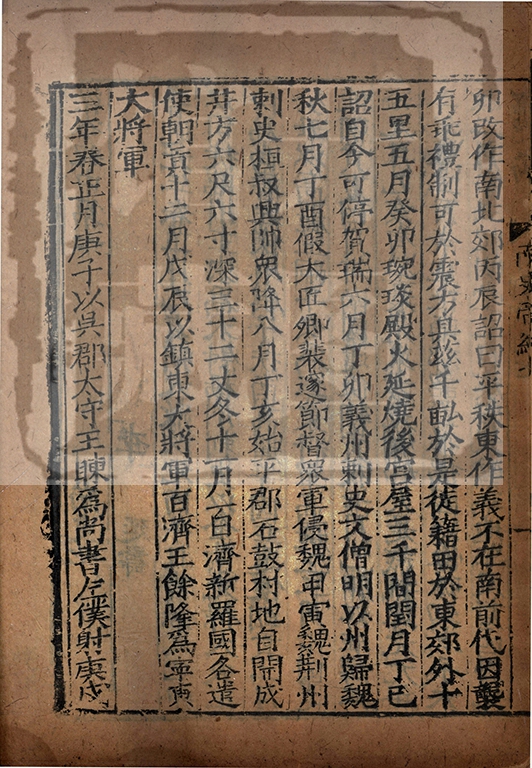 卯改作南北郊丙辰詔曰平秩東作義不在南前代因襲
有乖禮制可於震方具茲千畝於是徙籍田於東郊外十
五里五月癸卯琬琰殿火延燒後宮屋三千間閏月丁巳
詔自今可停賀瑞六月丁卯義州刺史文僧明以州歸魏
秋七月丁酉假大匠卿裴邃節督眾軍侵魏甲寅魏荆州
刺史桓叔興帥眾降八月丁亥始平郡石鼓村地自開成
井方六尺六寸深三十二丈冬十一月百濟新羅國各遣
使朝貢十二月戊辰以鎮東大將軍百濟王餘隆為寧東
大將軍
三年春正月庚子以吳郡太守王暕為尚書左僕射庚戌